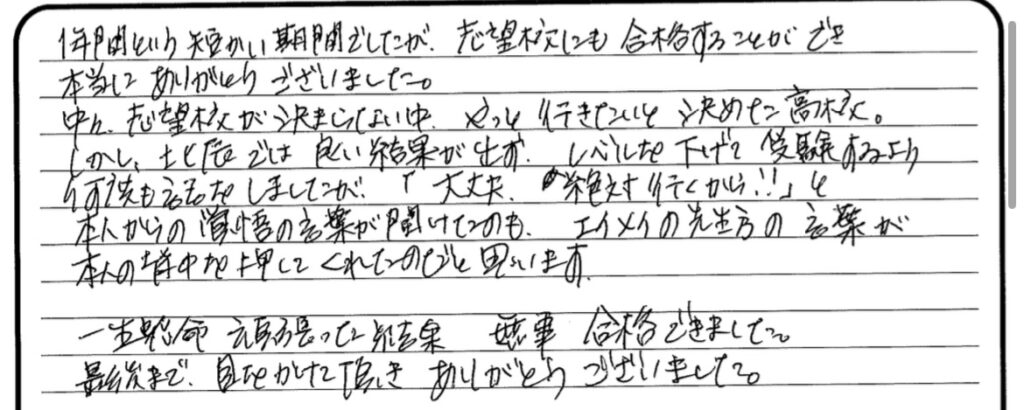 1年間という短かい期間でしたが、志望校にも合格することができ
本当に ありがとう ございました。
中々、志望校が決まらない中、やっと行きたいと決めた高校。
しかし、北辰では良い結果が出ず、レベルを下げて受験するよう
何度も話をしましたが、「大丈夫、絶対行くから!!」と
本人からの覚悟の言葉が聞けたのも、エイメイの先生方の言葉が
本人の背中を押してくれたのだと思います。
一生懸命 頑張った結果 無事 合格できました。
最後まで、目をかけて頂き ありがとう ございました。